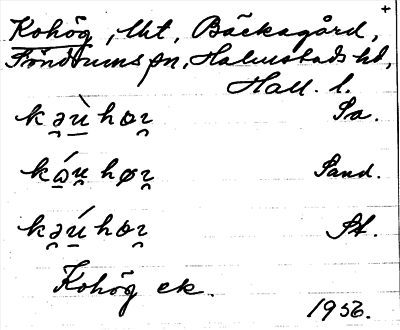 +
Kohög, Uxt, Bäckagård,
Söndrums sn, Halmstads hd,
Hall. l.
kə̯ù̲ hoɿ̯ Sa.
kɷ́u̯ høɿ̯ Sand.
kə̯ú̲ hoɿ̯ St.
Kohög ek.
1956.